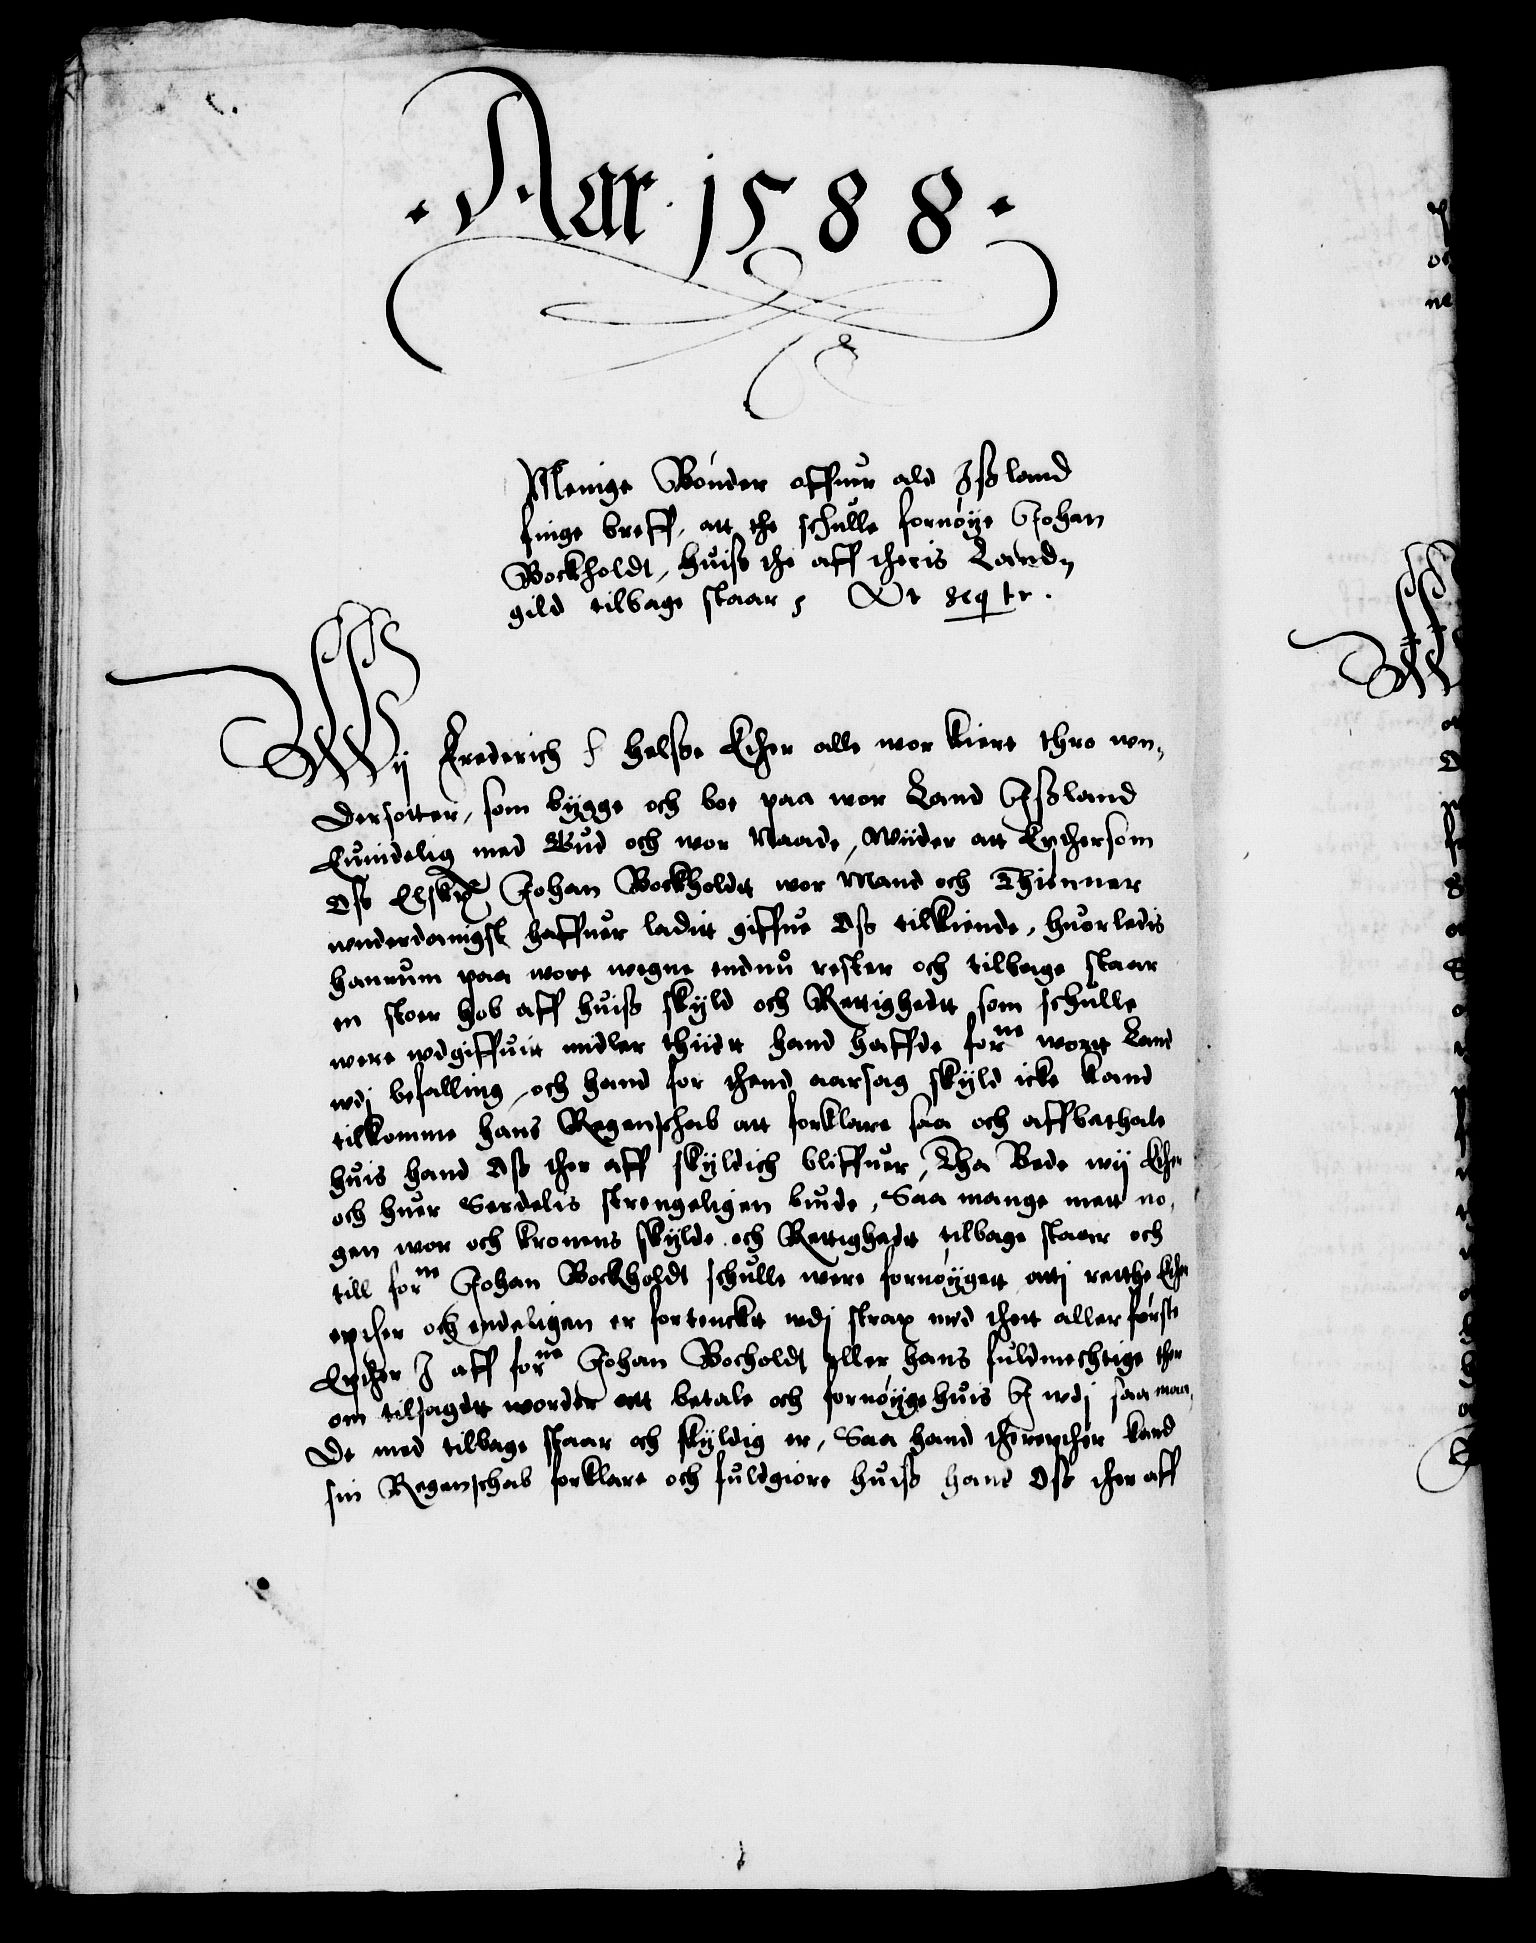 Aar 1588
Menige Bønder offuer ald Jsland
finge breff, att the schulle fornøye Johan
Bockholdt, huiss the aff theris Land,
gild tilbage staar, Vt seqtr.
Wij Frederich ꝭ Helsse Ether alle wor kiere thro wn,
dersotter, som bygge och boe paa wor Land Jsland
Euindelig med Gud och wor Naade, Wiider att Epthersom
Oss Elskℓ Johan Bockholdtt wor Mand och Thienner
wnderdanigst haffuer laditt giffue Oss tilkiende, huorledis
hannum paa wore wegne endnu rester och tilbage staar
en stoer hob aff huiss skyld och Rettighedtt som schulle
were wdgiffuitt midler thiidtt hand haffde forne wortt Land
wdj befalling, och hand for thend aarsag skyld icke kand
tilkomme hans Regenschab att forklare saa och affbethale
huis hand Oss ther aff skyldich bliffuer, Tha Bede wij Ether
och huer Serdelis strengeligen biude, Saa mange mett no,
gen wor och kronens skylde och Rettighedtt tilbage staar och
till forne Johan Bockholdt schulle were fornøygett attj rette Ether
epther och endeligen er fortencktt wdj strax med thett aller første
Epther J aff forne Johan Bocholdt eller hans fuldmechtige ther
om tilsagdtt worder att betale och fornøyge huis J wdj saa maa,
de med tilbage staar och skyldig er, Saa hand therepther kand
sin Regenschab forklare och fuldgiøre huiss hand Oss ther aff